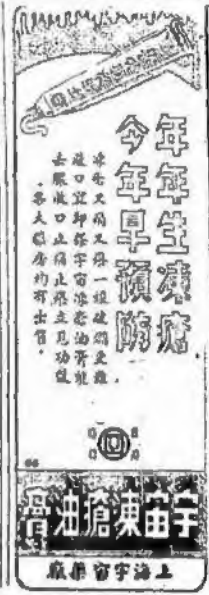 年年生凍瘡
今年早預防
凍瘡又痛又癢一經破爛更難
收口宜即搽宇宙凍瘡油膏能
去腐收口止痛止癢立見功效
。各大藥房均有出售。
宇宙凍瘡油膏
上海宇宙藥廠